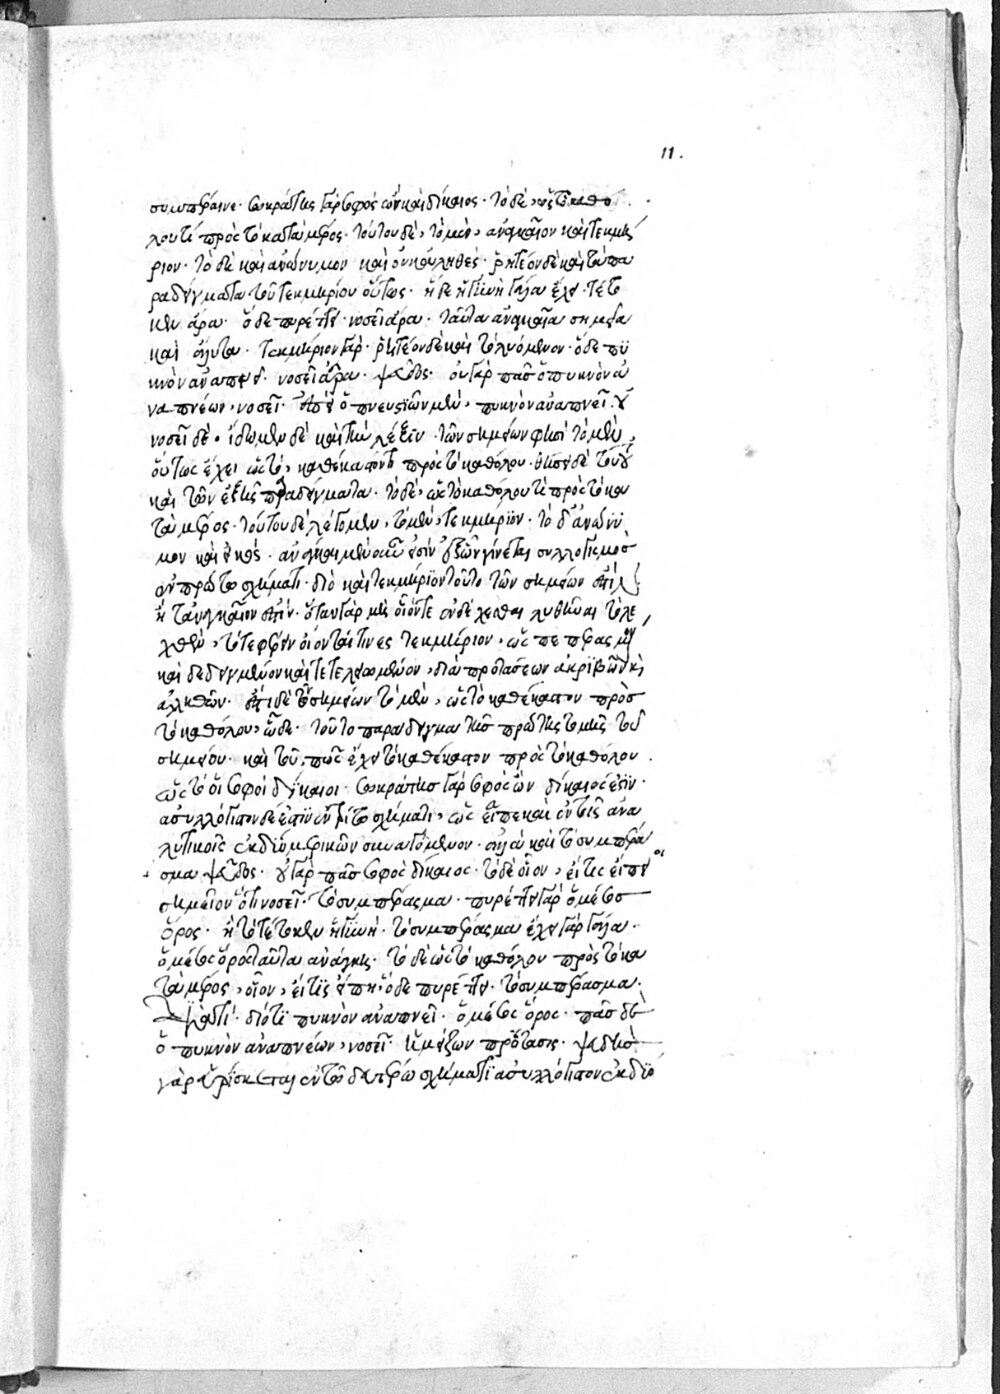 11.
συμπέρανε· σωκράτης γὰρ σοφὸς ὢν καὶ δίκαιος· τὸ δὲ, ὡς τὸ καθό
λου τί πρὸς τὸ κατὰ μέρος· τούτου δὲ, τὸ μὲν, ἀναγκαῖον καὶ τεκμή
ριον· τὸ δὲ καὶ ἀνώνυμον καὶ οὐκ ἀληθές· ῥητέον δὲ καὶ τὰ πα
ραδείγματα τοῦ τεκμηρίου οὕτως· ἥδε ἡ γυνὴ γάλα ἔχει· τέτο
κεν ἄρα· ὅδε πυρέττει· νοσεῖ ἄρα· ταῦτα ἀναγκαῖα σημεῖα
καὶ ἄλυτα· τεκμήριον γάρ· ῥητέον δὲ καὶ τὸ λυόμενον· ὅδε πυ
κνὸν ἀναπνεῖ· νοσεῖ ἄρα· ψεῦδος· οὐ γὰρ πᾶς ὁ πυκνὸν ἀ
ναπνέων, νοσεῖ· ἐπεὶ ὁ πνευστιῶν μὲν, πυκνὸν ἀναπνεῖ· οὐ
νοσεῖ δέ· ἴδωμεν δὲ καὶ τὴν λέξιν· τῶν σημείων φησὶ τὸ μὲν,
οὕτως ἔχει ὡς τὸ, καθέκαστόν τι πρὸς τὸ καθόλου· θήσει δὲ τούτου
καὶ τῶν ἑξῆς παραδείγματα· τὸ δὲ, ὡς τὸ καθόλου τὶ πρὸς τὸ κα
τὰ μέρος· τούτου δὲ λέγομεν, τὸ μὲν, τεκμήριον· τὸ δ' ἀνώνυ
μον καὶ εἰκός· ἀναγκαῖα μὲν οὖν εἰσὶν ἐξ ὧν γίνεται συλλογισμὸς
ἐν πρώτῳ σχήματι· διὸ καὶ τεκμήριον τοῦτο τῶν σημείων ἐστὶ
ἢ τἀναγκαῖον ἐστίν· ὅταν γὰρ μὴ οἷόν τε ἐνδέχεσθαι λυθῆναι τὸ λε
χθὲν, τότε φέρειν οἴονταί τινες τεκμήριον, ὡς πεπερασμένον
καὶ δεδειγμένον καὶ τετελεσμένον, διὰ προτάσεων ἀκριβῶν καὶ
ἀληθῶν· ἐπεὶ δὲ τῶν σημείων τὸ μὲν, ὡς τὸ καθέκαστον πρὸς
τὸ καθόλου, ὧδε· τοῦτο παράδειγμα τῆς πρώτης τομῆς τοῦ
σημείου· καὶ τοῦ, πῶς ἔχει τὸ καθέκαστον πρὸς τὸ καθόλου·
ὡς τὸ οἱ σοφοὶ δίκαιοι· σωκράτης γὰρ σοφὸς ὢν δίκαιός ἐστιν·
ἀσυλλόγιστον δέ ἐστιν ἐν τρίτῳ σχήματι, ὡς εἶπε καὶ ἐν τοῖς ἀνα
λυτικοῖς ἐκ δύο μερικῶν συναγόμενον· ἀλλὰ καὶ τὸ συμπέρα
σμα ψεῦδος· οὐ γὰρ πᾶς σοφὸς δίκαιος· τὸ δὲ οἷον, εἴ τις εἴποι
σημεῖον ὅτι νοσεῖ· τὸ συμπέρασμα· πυρέττει γὰρ ὁ μέσος
ὅρος· ἢ τὸ τέτοκεν ἡ γυνή· τὸ συμπέρασμα ἔχει γὰρ γάλα·
ὁ μέσος ὅρος ταῦτα ἀνάγκης· τὸ δὲ ὡς τὸ καθόλου πρὸς τὸ κα
τὰ μέρος, οἷον, εἴ τις εἴπῃ ὅδε πυρέττει· τὸ συμπέρασμα·
διότι πυκνὸν ἀναπνεῖ· ὁ μέσος ὅρος· πᾶς δὲ
ὁ πυκνὸν ἀναπνέων, νοσεῖ· ἡ μείζων πρότασις· ψευδὴς
γὰρ εὑρίσκεται ἐν τῷ δευτέρῳ σχήματι ἀσυλλόγιστον ἐκ δύο